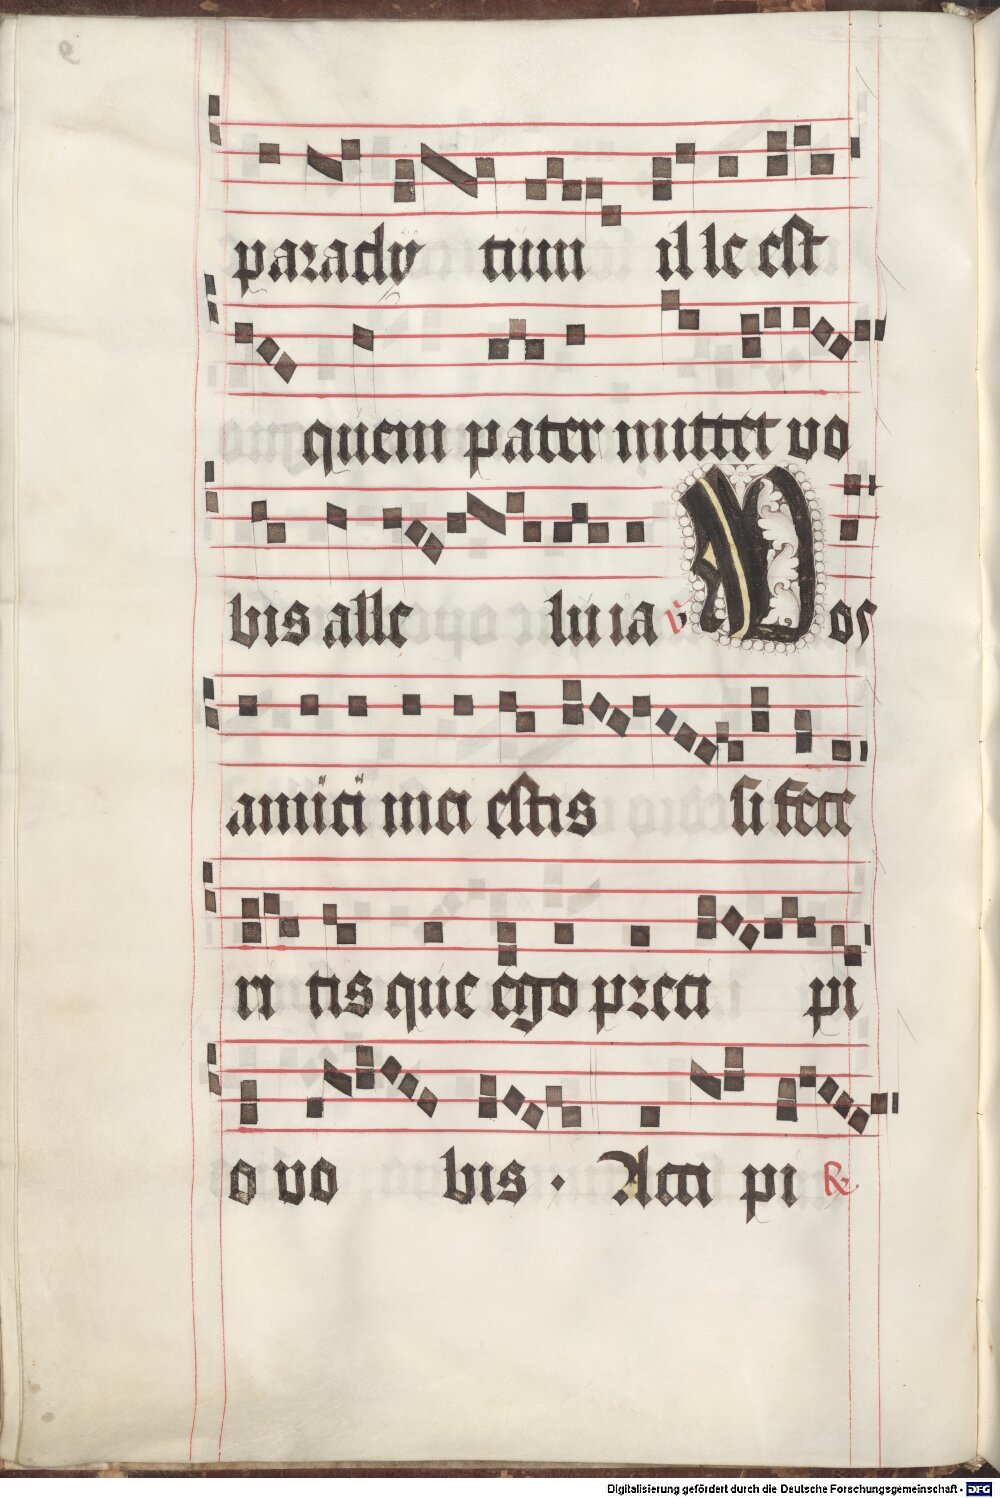 paracly tum il le est
quem pater mittet vo
bis alle lu ia ℣ Vos
amici mei estis si fece
ri tis que ego preci pi
o vo bis · Acci pi ℟
Digitalisierung gefördert durch die Deutsche Forschungsgemeinschaft - DFG